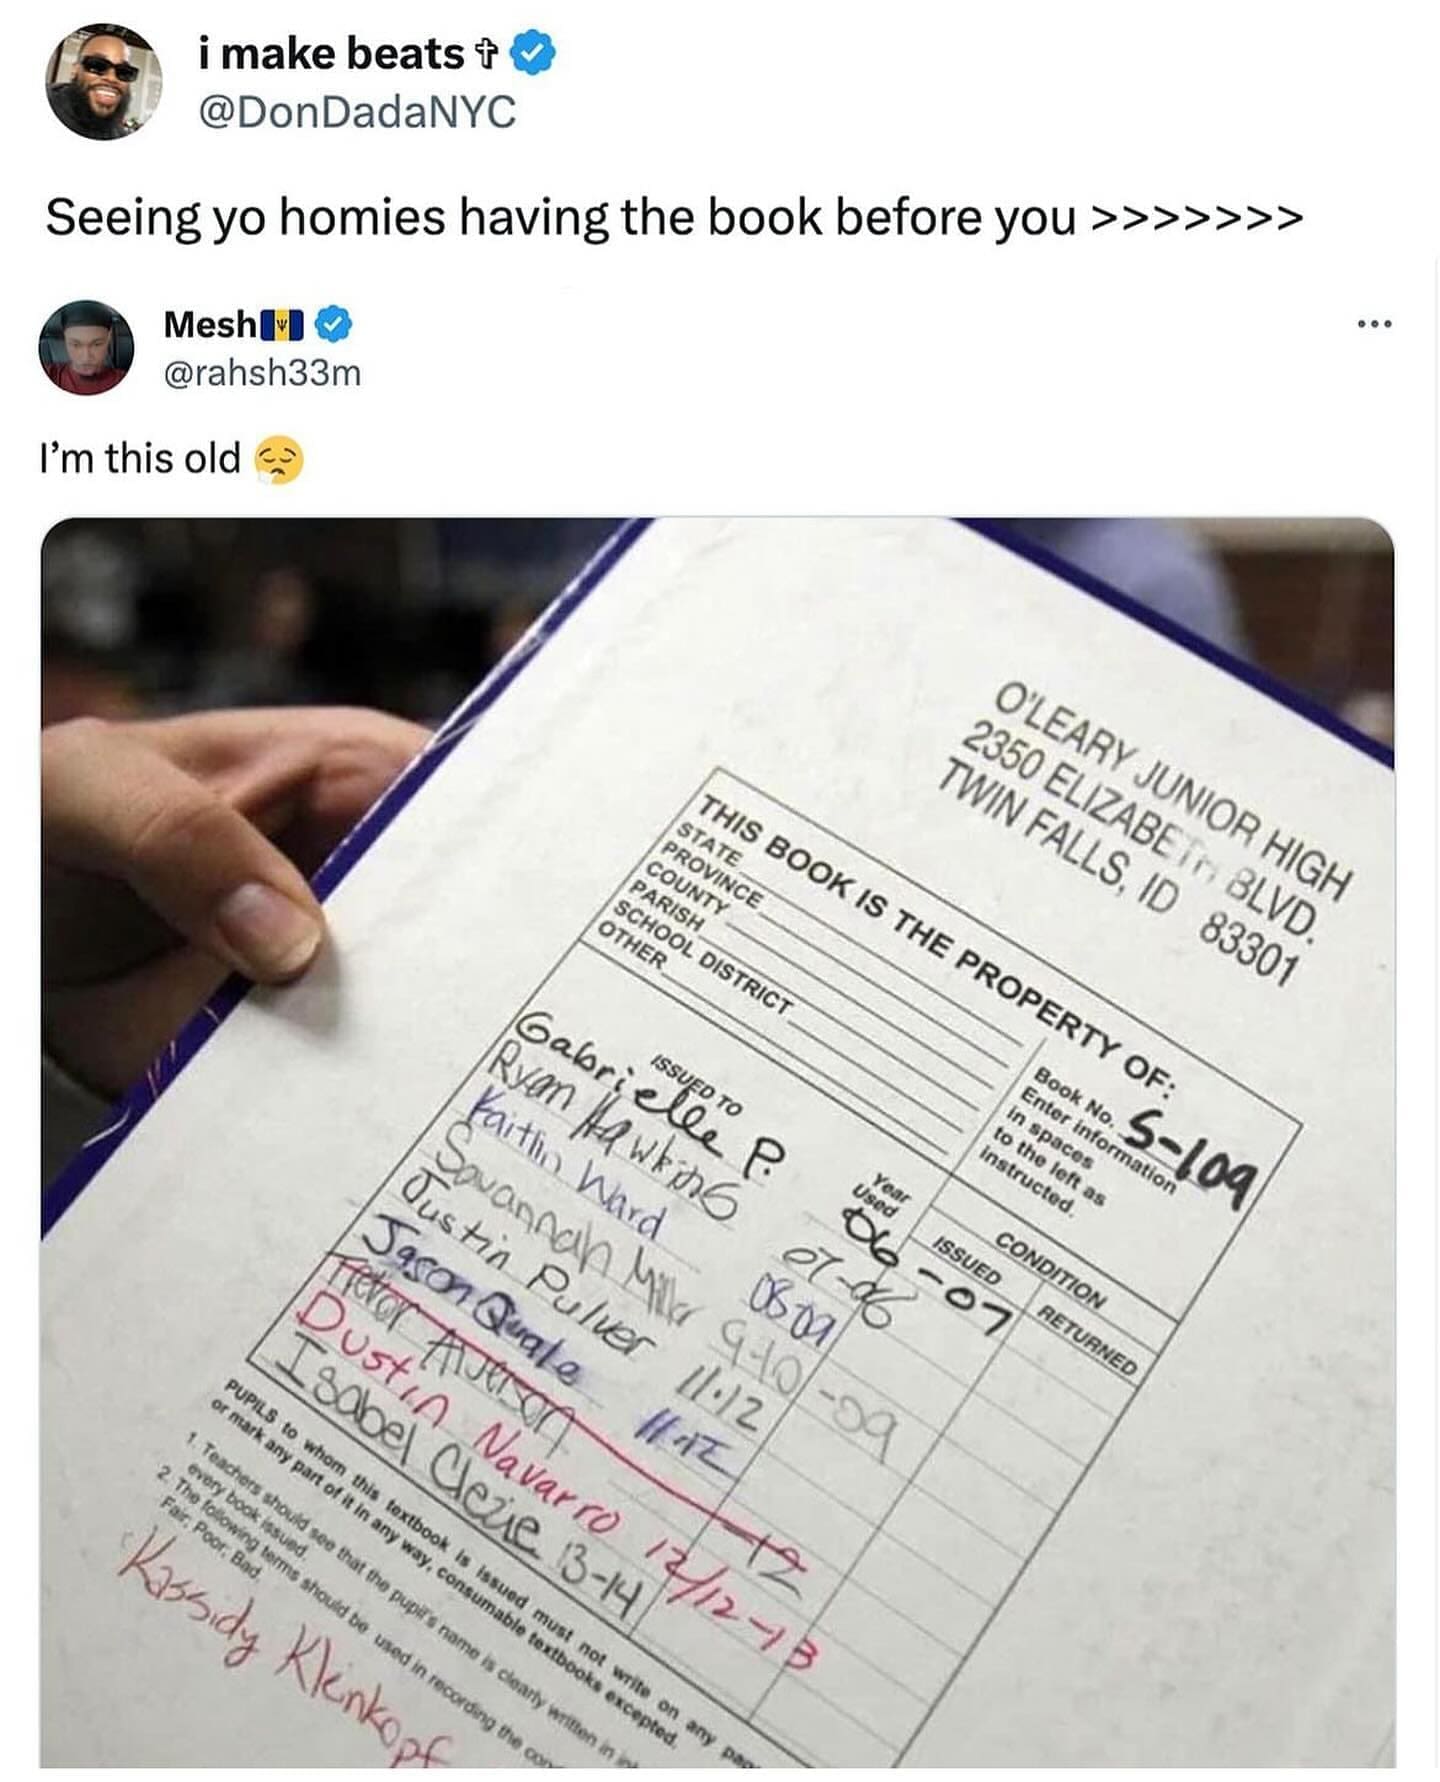 i make beats ✞
@DonDadaNYC
Seeing yo homies having the book before you >>>>>>>
Mesh🇧🇧
@rahsh33m
I'm this old 😮‍💨
O'LEARY JUNIOR HIGH
2350 ELIZABETH BLVD.
TWIN FALLS, ID 83301
THIS BOOK IS THE PROPERTY OF:
STATE
PROVINCE
COUNTY
PARISH
SCHOOL DISTRICT
OTHER
Book No. S-109
Enter information
in spaces
to the left as
instructed.
ISSUED TO
Year
Used
CONDITION
ISSUED
RETURNED
Gabrielle P. 06-07
Ryan Hawkins 07-06
Kaitlin Ward 08 09
Savannah Miller 9-10-09
Justin Pulver 11.12
Jason Quale 11.12
Trevor -12
Dustin Navarro 12/12-13
Isabel Clezie 13-14
PUPILS to whom this textbook is issued must not write on any
or mark any part of it in any way, consumable textbooks excepted.
1. Teachers should see that the pupil's name is clearly written in
every book issued.
2. The following terms should be used in recording the
Fair; Poor; Bad.
Kassidy Kleinkopf